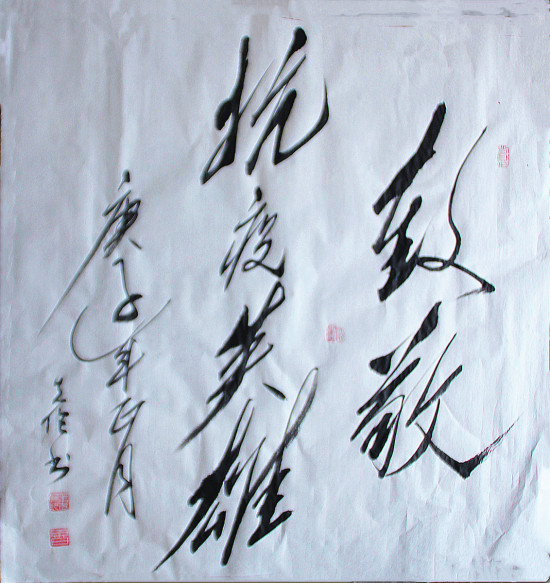 致敬
抗疫英雄
庚子年正月
书